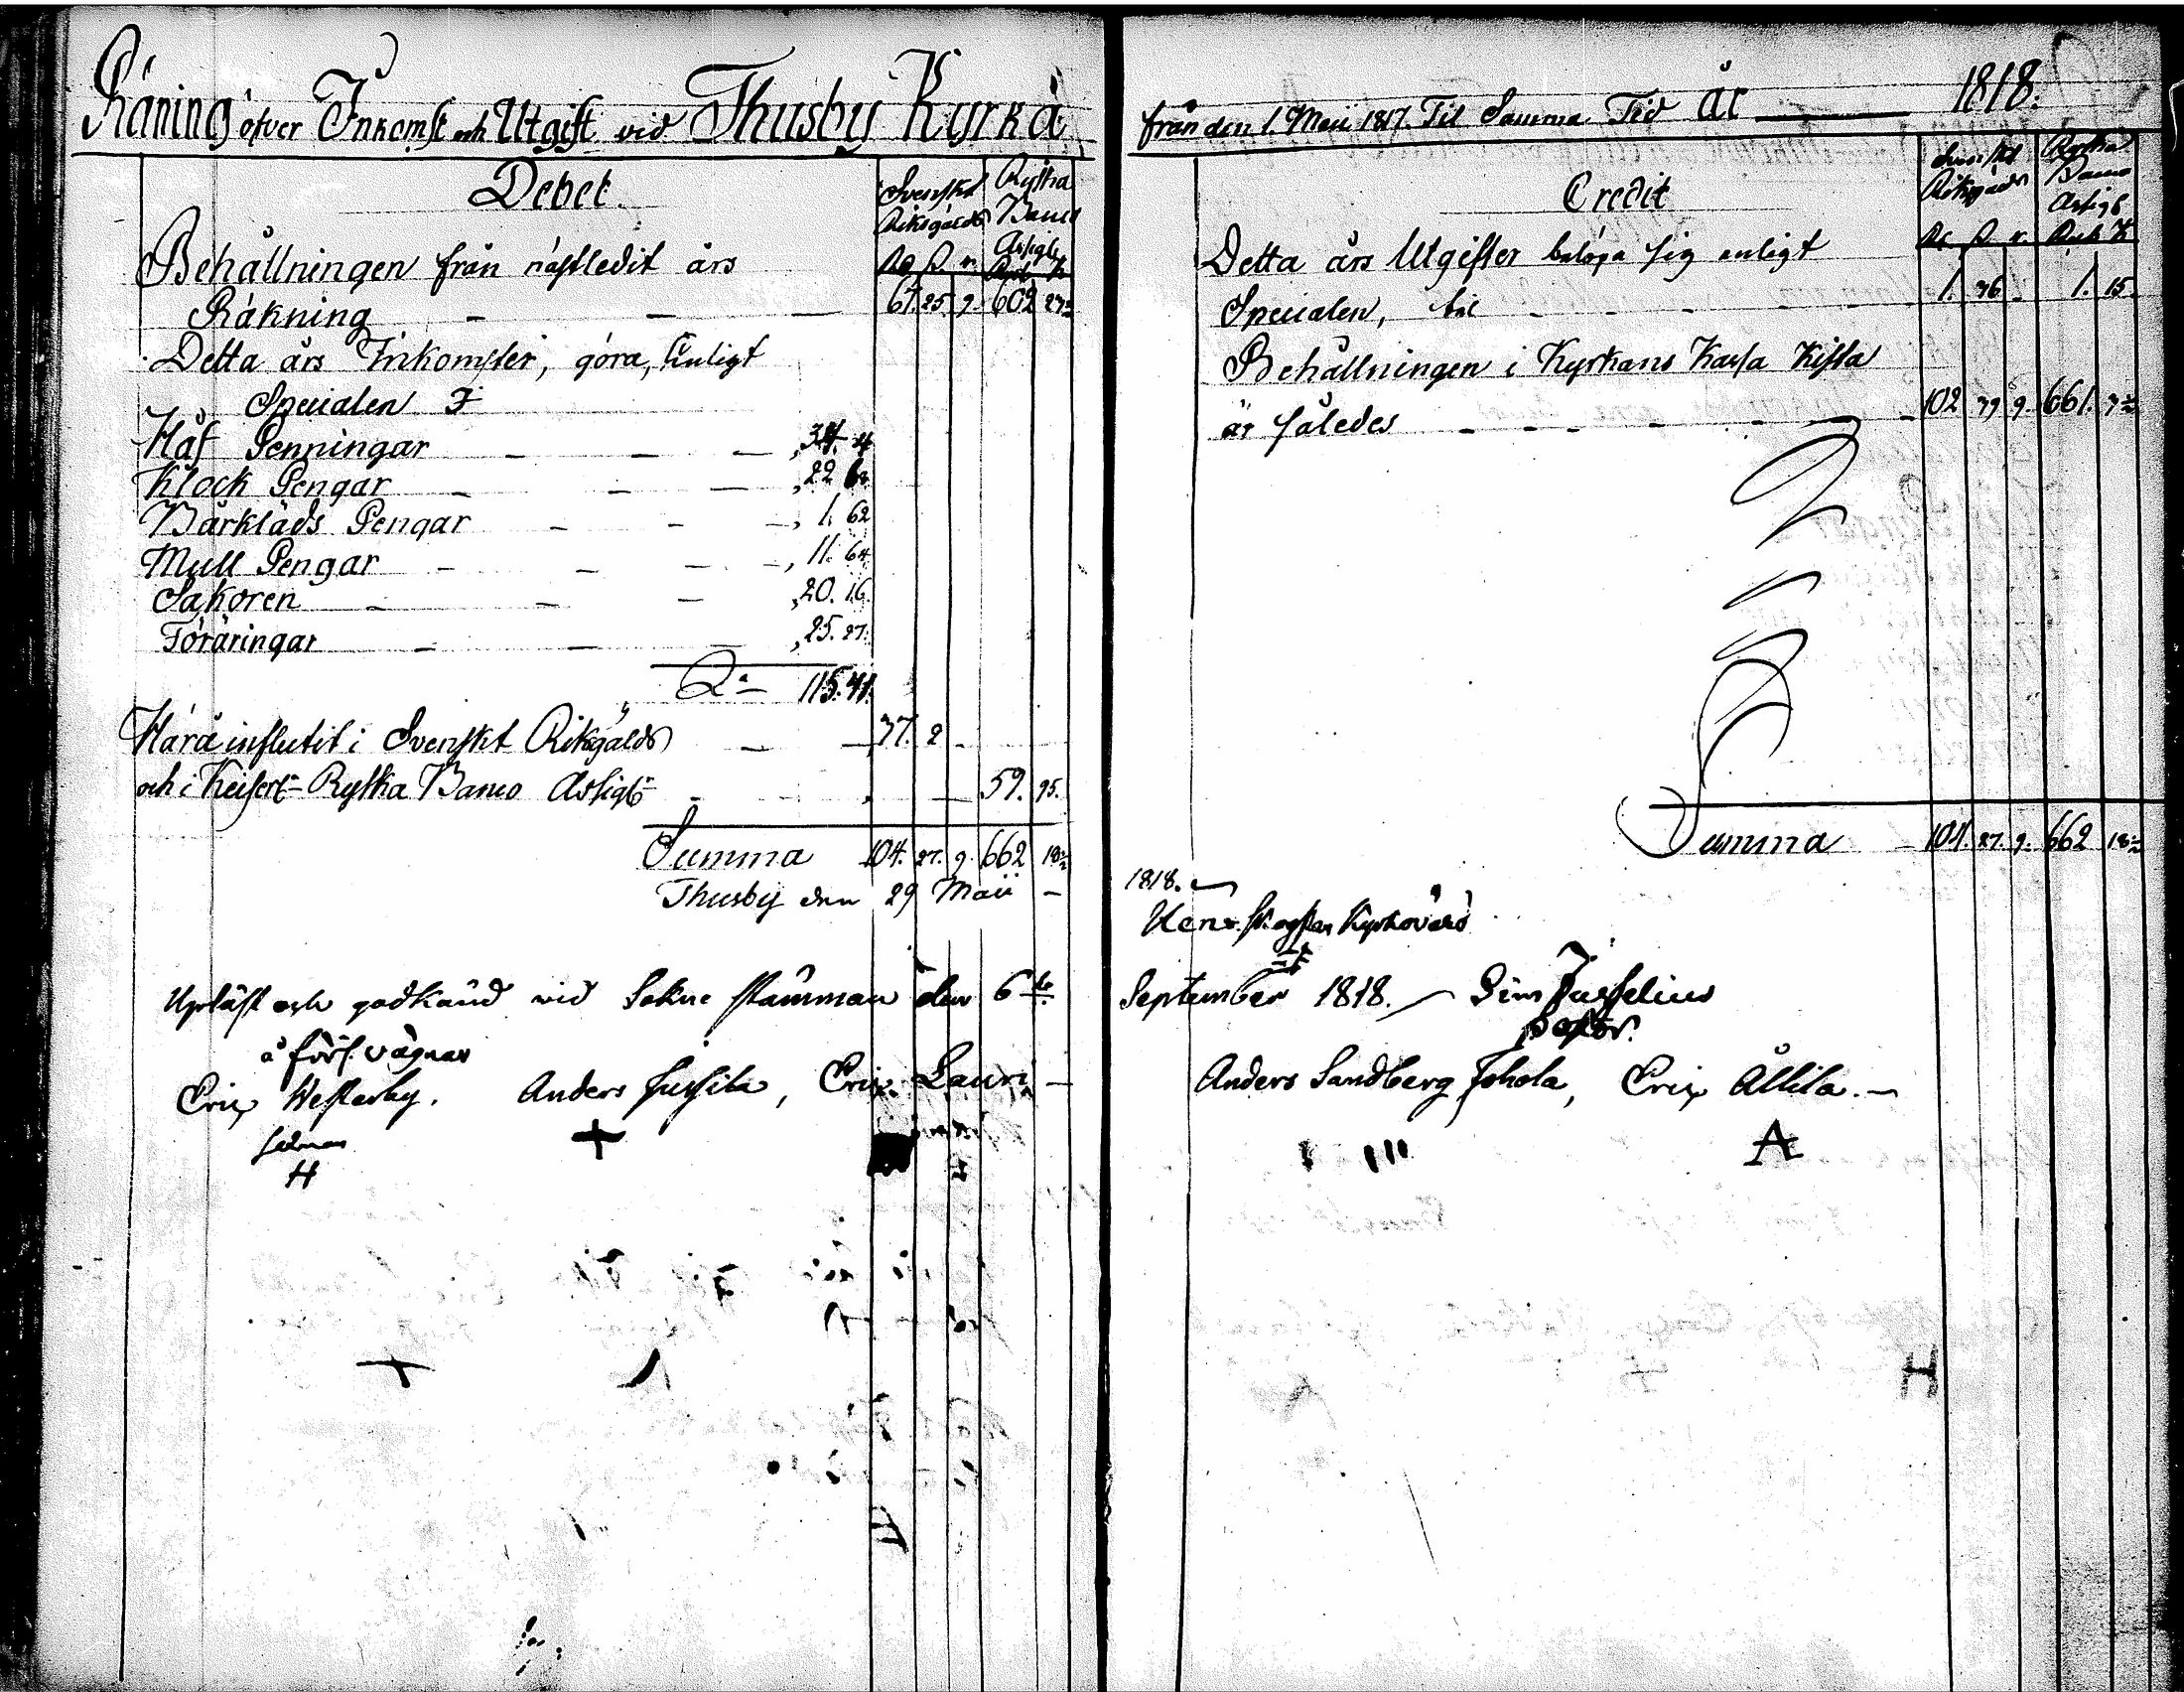 Räning öfver Inkomst och Utgift vid Thusby Kyrka
Debet
Svenskt Riksgälds
Ryska Banco Assigt
Rd ß. r. Rub K
Behållningen från nästledit års
Räkning — — — 67. 25. 9. 602 23½
Detta års Inkomster, göra, Enligt
Specialen
Håf Penningar — — — 34. 4
Klock Pengar — — — 22
Bårkläds Pengar — — — 1. 62
Mull Pengar — — — 11. 64.
Sakören — — — 20. 16.
Föräringar — — — 25. 27.
115. 41.
Härå influtit i Svenskt Riksgälds — — 37. 2 -
och i Keiserl- Ryska Banco Assigt- — 59. 95.
Summa 104. 27. 9. 662 18½
Thusby den 29 Maii —
Upläst och godkänd vid Sokne stämman den 6te
å förs. vägnar
Eric Westerby. Anders Jussila, Eric Lauri —
H
från den 1. Maii 1817. Til Samma Tid år — 1818.
Credit
Svenskt Riksgälds
Ryska Banco Assigt
Rd ß. r. Rub K
Detta års Utgifter belöpa sig enligt
Specialen, til - - - - 1. 36 - 1. 15.
Behållningen i Kyrkans Kassa Kista
är således - - - - 102 39 9. 661. 3½
Summa — 104. 27. 9. 662 18½
1818.
Kyrkovärd
September 1818. —
Pastor.
Anders Sandberg Johola, Eric Allila. —
A